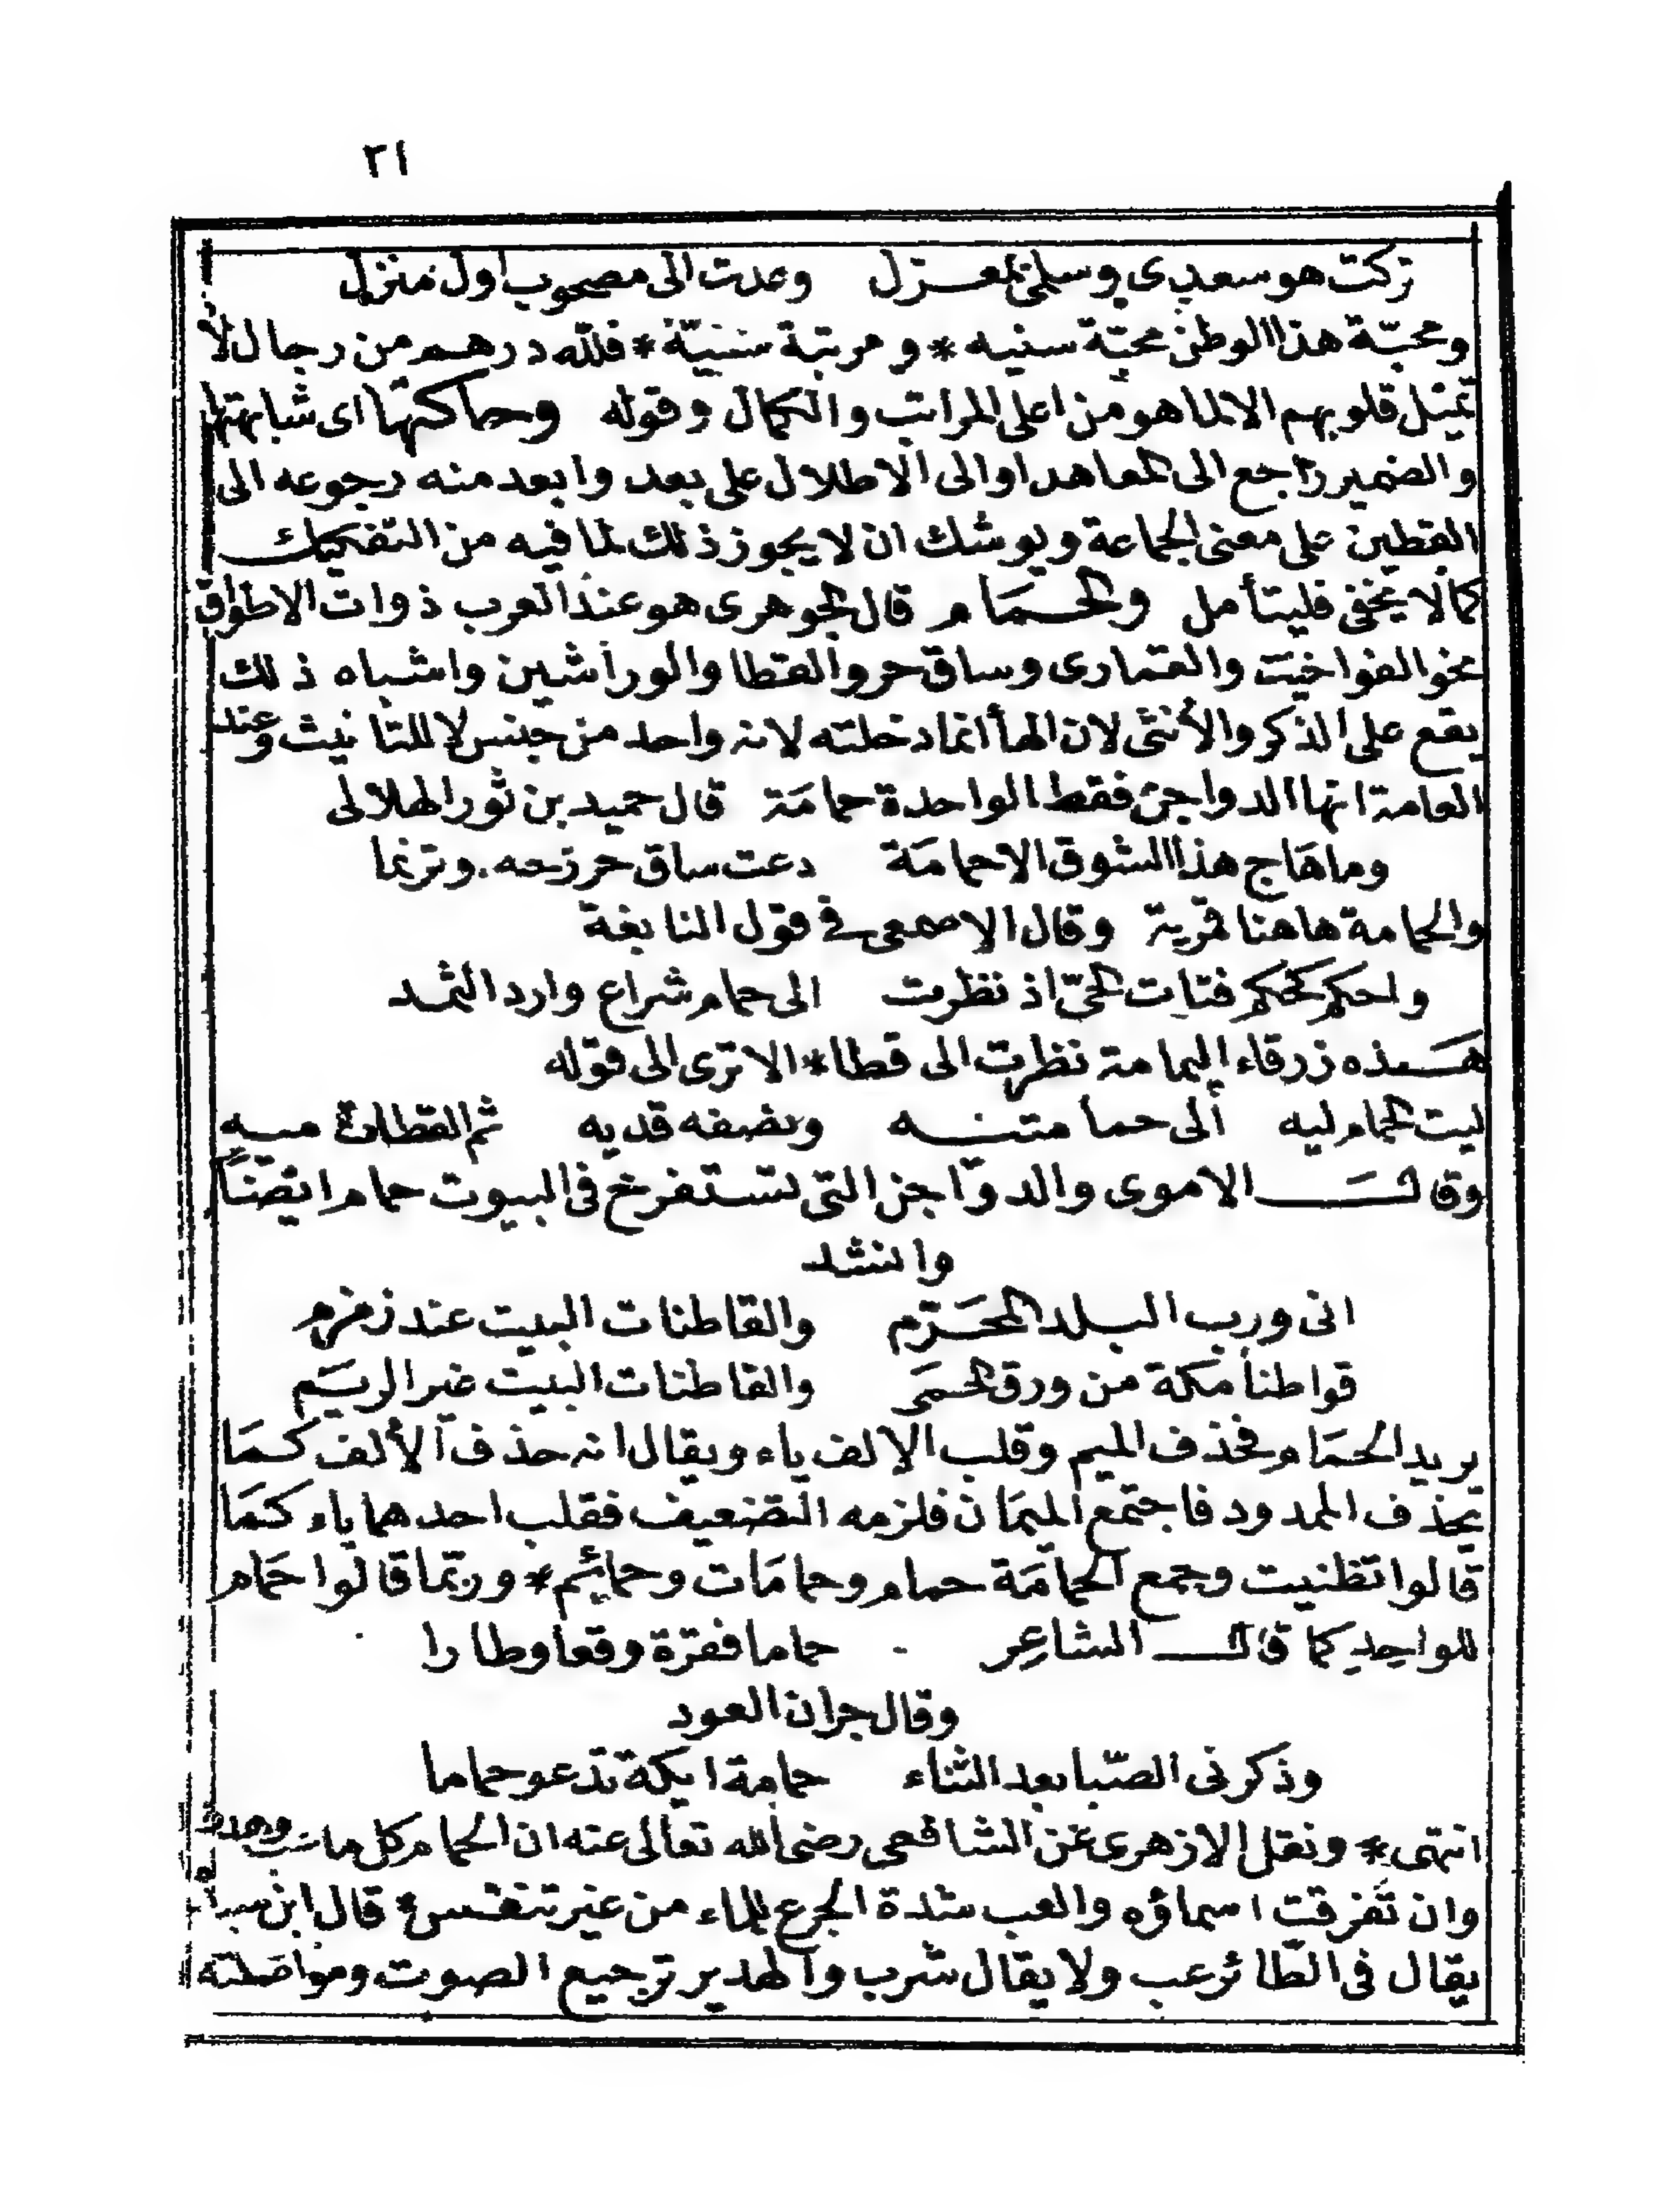 ٢١
تركت هو سعدى وسلمى بمعزل وعدت الى مصحوب اول منزل
ومحبّة هذا الوطن محبّة سنيه * و مرتبة سنيّة * فلله درهم من رجال لا
تميل قلوبهم الا لما هو من اعلى المراتب والكمال وقوله وحاكتها اى شابهتها
والضمير راجع الى المعاهد او الى الاطلال على بعد وابعد منه رجوعه الى
القطين على معنى الجماعة ويوشك ان لا يجوز ذلك لما فيه من التفكيك
كما لا يخفى فليتأمل والحمام قال الجوهرى هو عند العرب ذوات الاطواق
نحو الفواخيت والقمارى وساق حر والقطا والوراشين واشباه ذلك
يقع على الذكر والأنثى لان الهأ انما دخلته لانه واحد من جنس لا للتانيث وعند
العامة انها الدواجن فقط الواحدة حمامَة قال حميد بن ثور الهلالى
وما هَاج هذا الشوق الا حمامَة دعت ساق حر نزحه . وترنما
والحمامة هاهنا قمرية وقال الاصمعى فى قول النابغة
واحكم كحكم فتات الحىّ اذ نظرت الى حمام شراع وارد الثمد
هَذه زرقاء اليمامة نظرت الى قطا * الا ترى الى قوله
ليت الحمام ليه الى حمامتيه ونصفه قديه ثم القطاة ميه
وقالَ الاموى والدوّاجن التى تستفرخ فى البيوت حمام ايضًا
وانشد
انى ورب البلد المحَرّم والقاطنات البيت عند زمزم
قواطنا مكة من ورق الحمَى والقاطنات البيت غير الريّم
يريد الحمَام فحذف الميم وقلب الالف ياء ويقال انه حذف الألف كمَا
تحذف الممدود فاجتمع الميمَان فلزمه التضعيف فقلب احدهما ياء كمَا
قالوا تظنيت وجمع الحمامَة حمام وحمامَات وحمائم * وربّما قالوا حَمام
للواحِدِ كما قال الشاعِر حماما فقرّة وقعا وطارا
وقال جران العود
وذكرنى الصّبا بعد الثناء حمامة ايكة تدعو حماما
انتهى * ونقل الازهرى عن الشافعى رضى الله تعالى عنه ان الحمام كل ما عب وهدر
وان تفرقت اسماؤه والعب شدة الجرع للماء من غير تنفس قال ابن
يقال فى الطّائر عب ولا يقال شرب والهدير ترجيع الصوت ومواصَلته